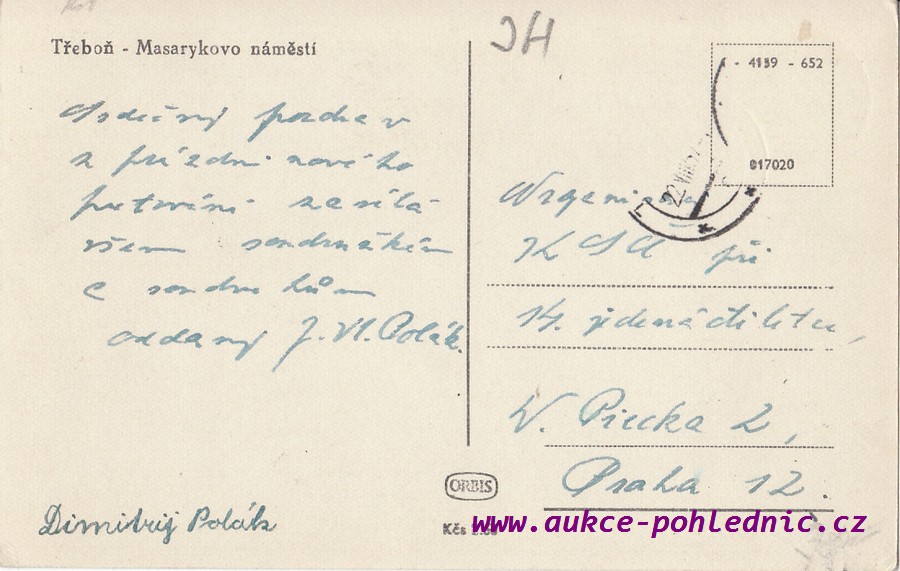 JH
Třeboň - Masarykovo náměstí
Srdečný pozdrav
z prázdnin nového
zasílá
všem soudružkám
a soudruhům
oddaný J. Vl. Polák.
Dimitrij Polák
- 4139 - 652
017020
22.VIII
Organisaci
KSČ při
14. jedenáctiletce,
W. Piecka 2,
Praha 12.
ORBIS
Kčs
www.aukce-pohlednic.cz